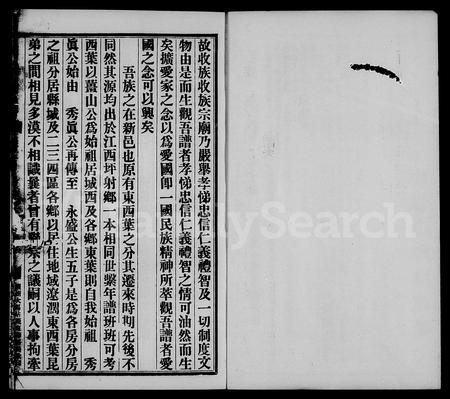 故收族收族宗廟乃嚴舉孝悌忠信仁義禮智及一切制度文
物由是而生觀吾譜者孝悌忠信仁義禮智之情可油然而生
矣擴愛家之念以為愛國卽一國民族精神所萃觀吾譜者愛
國之念可以興矣
吾族之在新邑也原有東西葉之分其遷來時期先後不
同然其源均出於江西坪射鄉一本相同世繫年譜班班可考
西葉以薑山公為始祖居城西及各鄉東葉則自我始祖 秀
眞公始由 秀眞公再傳至 永盛公生五子是為各房分房
之祖分居縣城及一二三四區各鄉以民住地域遼濶東西葉昆
弟之間相見多漠不相識曩者曾有聯宗之議嗣以人事拘牽
FamilySearch